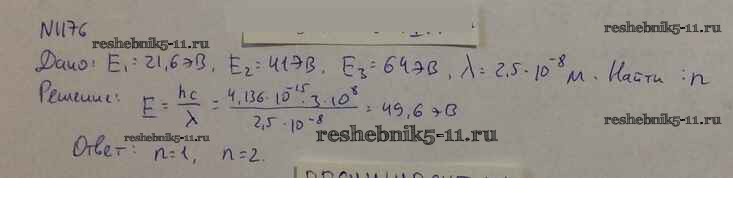 N1176
reshebnik5-11.ru
reshebnik5-11.ru
Дано: E₁ = 21,6 эВ, E₂ = 41 эВ, E₃ = 64 эВ, λ = 2,5 · 10⁻⁸ м. Найти: n
Решение: E = hc/λ = 4,136·10⁻¹⁵·3·10⁸/2,5·10⁻⁸ = 49,6 эВ
reshebnik5-11.ru
reshebnik5-11.ru
reshebnik5-11.ru
Ответ: n=1, n=2.